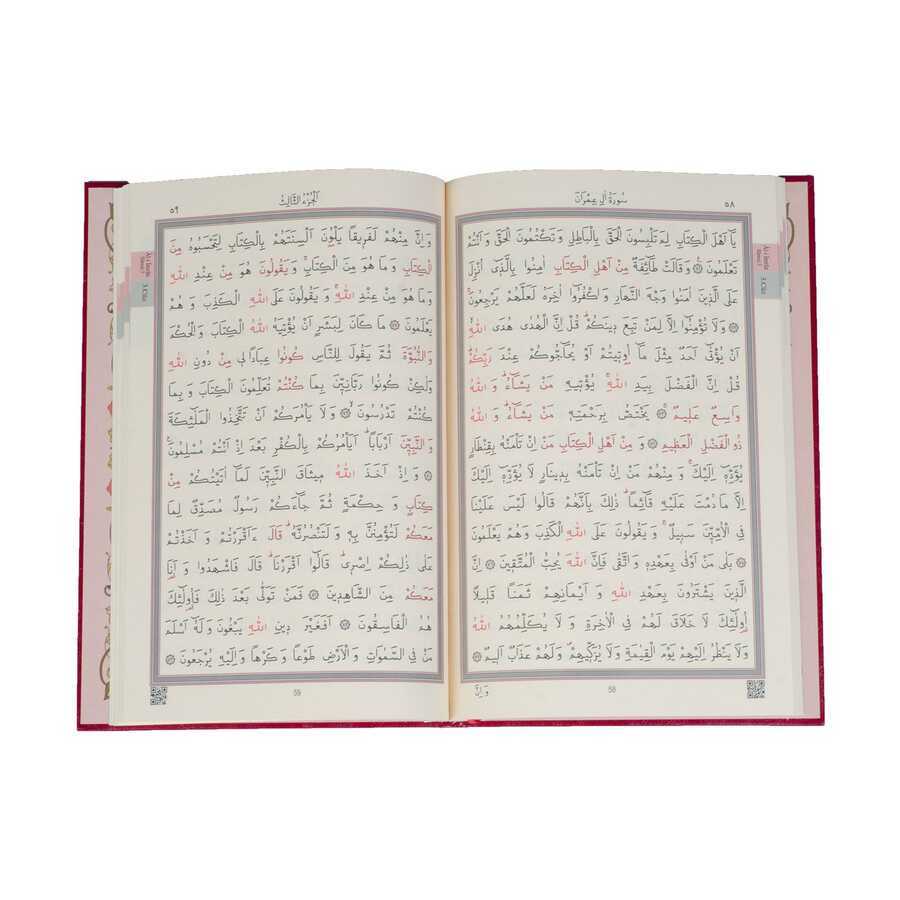 سُورَةُ اٰلِ عِمْرَانَ
٥٨
يَٓا اَهْلَ الْكِتَابِ لِمَ تَلْبِسُونَ الْحَقَّ بِالْبَاطِلِ وَ تَكْتُمُونَ الْحَقَّ وَ اَنْتُمْ
تَعْلَمُونَ ۞ وَ قَالَتْ طَٓائِفَةٌ مِنْ اَهْلِ الْكِتَابِ اٰمِنُوا بِالَّذٖٓى اُنْزِلَ
عَلَى الَّذٖينَ اٰمَنُوا وَجْهَ النَّهَارِ وَ اكْفُرُٓوا اٰخِرَهُ لَعَلَّهُمْ يَرْجِعُونَ
۞ وَ لَا تُؤْمِنُٓوا اِلَّا لِمَنْ تَبِعَ دٖينَكُمْ قُلْ اِنَّ الْهُدٰى هُدَى اللّٰهِ
اَنْ يُؤْتٰٓى اَحَدٌ مِثْلَ مَٓا اُوتٖيتُمْ اَوْ يُحَٓاجُّوكُمْ عِنْدَ رَبِّكُمْ
قُلْ اِنَّ الْفَضْلَ بِيَدِ اللّٰهِ يُؤْتٖيهِ مَنْ يَشَٓاءُ وَ اللّٰهُ
وَاسِعٌ عَلٖيمٌ ۞ يَخْتَصُّ بِرَحْمَتِهٖ مَنْ يَشَٓاءُ وَ اللّٰهُ
ذُو الْفَضْلِ الْعَظٖيمِ ۞ وَ مِنْ اَهْلِ الْكِتَابِ مَنْ اِنْ تَاْمَنْهُ بِقِنْطَارٍ
يُؤَدِّهٖٓ اِلَيْكَ وَ مِنْهُمْ مَنْ اِنْ تَاْمَنْهُ بِدٖينَارٍ لَا يُؤَدِّهٖٓ اِلَيْكَ
اِلَّا مَا دُمْتَ عَلَيْهِ قَٓائِمًا ذٰلِكَ بِاَنَّهُمْ قَالُوا لَيْسَ عَلَيْنَا
فِى الْاُمِّيّٖنَ سَبٖيلٌ وَ يَقُولُونَ عَلَى اللّٰهِ الْكَذِبَ وَ هُمْ يَعْلَمُونَ
۞ بَلٰى مَنْ اَوْفٰى بِعَهْدِهٖ وَ اتَّقٰى فَاِنَّ اللّٰهَ يُحِبُّ الْمُتَّقٖينَ ۞ اِنَّ
الَّذٖينَ يَشْتَرُونَ بِعَهْدِ اللّٰهِ وَ اَيْمَانِهِمْ ثَمَنًا قَلٖيلًا
اُولٰٓئِكَ لَا خَلَاقَ لَهُمْ فِى الْاٰخِرَةِ وَ لَا يُكَلِّمُهُمُ اللّٰهُ
وَ لَا يَنْظُرُ اِلَيْهِمْ يَوْمَ الْقِيٰمَةِ وَ لَا يُزَكّٖيهِمْ وَ لَهُمْ عَذَابٌ اَلٖيمٌ ۞
58
وَ اِنَّ
3.Cüz
اَلْجُزْءُ الثَّالِثُ
٥٩
وَ اِنَّ مِنْهُمْ لَفَرٖيقًا يَلْوُ۫نَ اَلْسِنَتَهُمْ بِالْكِتَابِ لِتَحْسَبُوهُ مِنَ
الْكِتَابِ وَ مَا هُوَ مِنَ الْكِتَابِ وَ يَقُولُونَ هُوَ مِنْ عِنْدِ اللّٰهِ
وَ مَا هُوَ مِنْ عِنْدِ اللّٰهِ وَ يَقُولُونَ عَلَى اللّٰهِ الْكَذِبَ وَ هُمْ
يَعْلَمُونَ ۞ مَا كَانَ لِبَشَرٍ اَنْ يُؤْتِيَهُ اللّٰهُ الْكِتَابَ وَ الْحُكْمَ
وَ النُّبُوَّةَ ثُمَّ يَقُولَ لِلنَّاسِ كُونُوا عِبَادًا لٖى مِنْ دُونِ اللّٰهِ
وَ لٰكِنْ كُونُوا رَبَّانِيّٖنَ بِمَا كُنْتُمْ تُعَلِّمُونَ الْكِتَابَ وَ بِمَا
كُنْتُمْ تَدْرُسُونَ ۞ وَ لَا يَاْمُرَكُمْ اَنْ تَتَّخِذُوا الْمَلٰٓئِكَةَ
وَ النَّبِيّٖنَ اَرْبَابًا اَيَاْمُرُكُمْ بِالْكُفْرِ بَعْدَ اِذْ اَنْتُمْ مُسْلِمُونَ
۞ وَ اِذْ اَخَذَ اللّٰهُ مٖيثَاقَ النَّبِيّٖنَ لَمَٓا اٰتَيْتُكُمْ مِنْ
كِتَابٍ وَ حِكْمَةٍ ثُمَّ جَٓاءَكُمْ رَسُولٌ مُصَدِّقٌ لِمَا
مَعَكُمْ لَتُؤْمِنُنَّ بِهٖ وَ لَتَنْصُرُنَّهُ قَالَ ءَاَقْرَرْتُمْ وَ اَخَذْتُمْ
عَلٰى ذٰلِكُمْ اِصْرٖى قَالُٓوا اَقْرَرْنَا قَالَ فَاشْهَدُوا وَ اَنَا۬
مَعَكُمْ مِنَ الشَّاهِدٖينَ ۞ فَمَنْ تَوَلّٰى بَعْدَ ذٰلِكَ فَاُولٰٓئِكَ
هُمُ الْفَاسِقُونَ ۞ اَفَغَيْرَ دٖينِ اللّٰهِ يَبْغُونَ وَ لَهُٓ اَسْلَمَ
مَنْ فِى السَّمٰوَاتِ وَ الْاَرْضِ طَوْعًا وَ كَرْهًا وَ اِلَيْهِ يُرْجَعُونَ ۞
59
3.Cüz